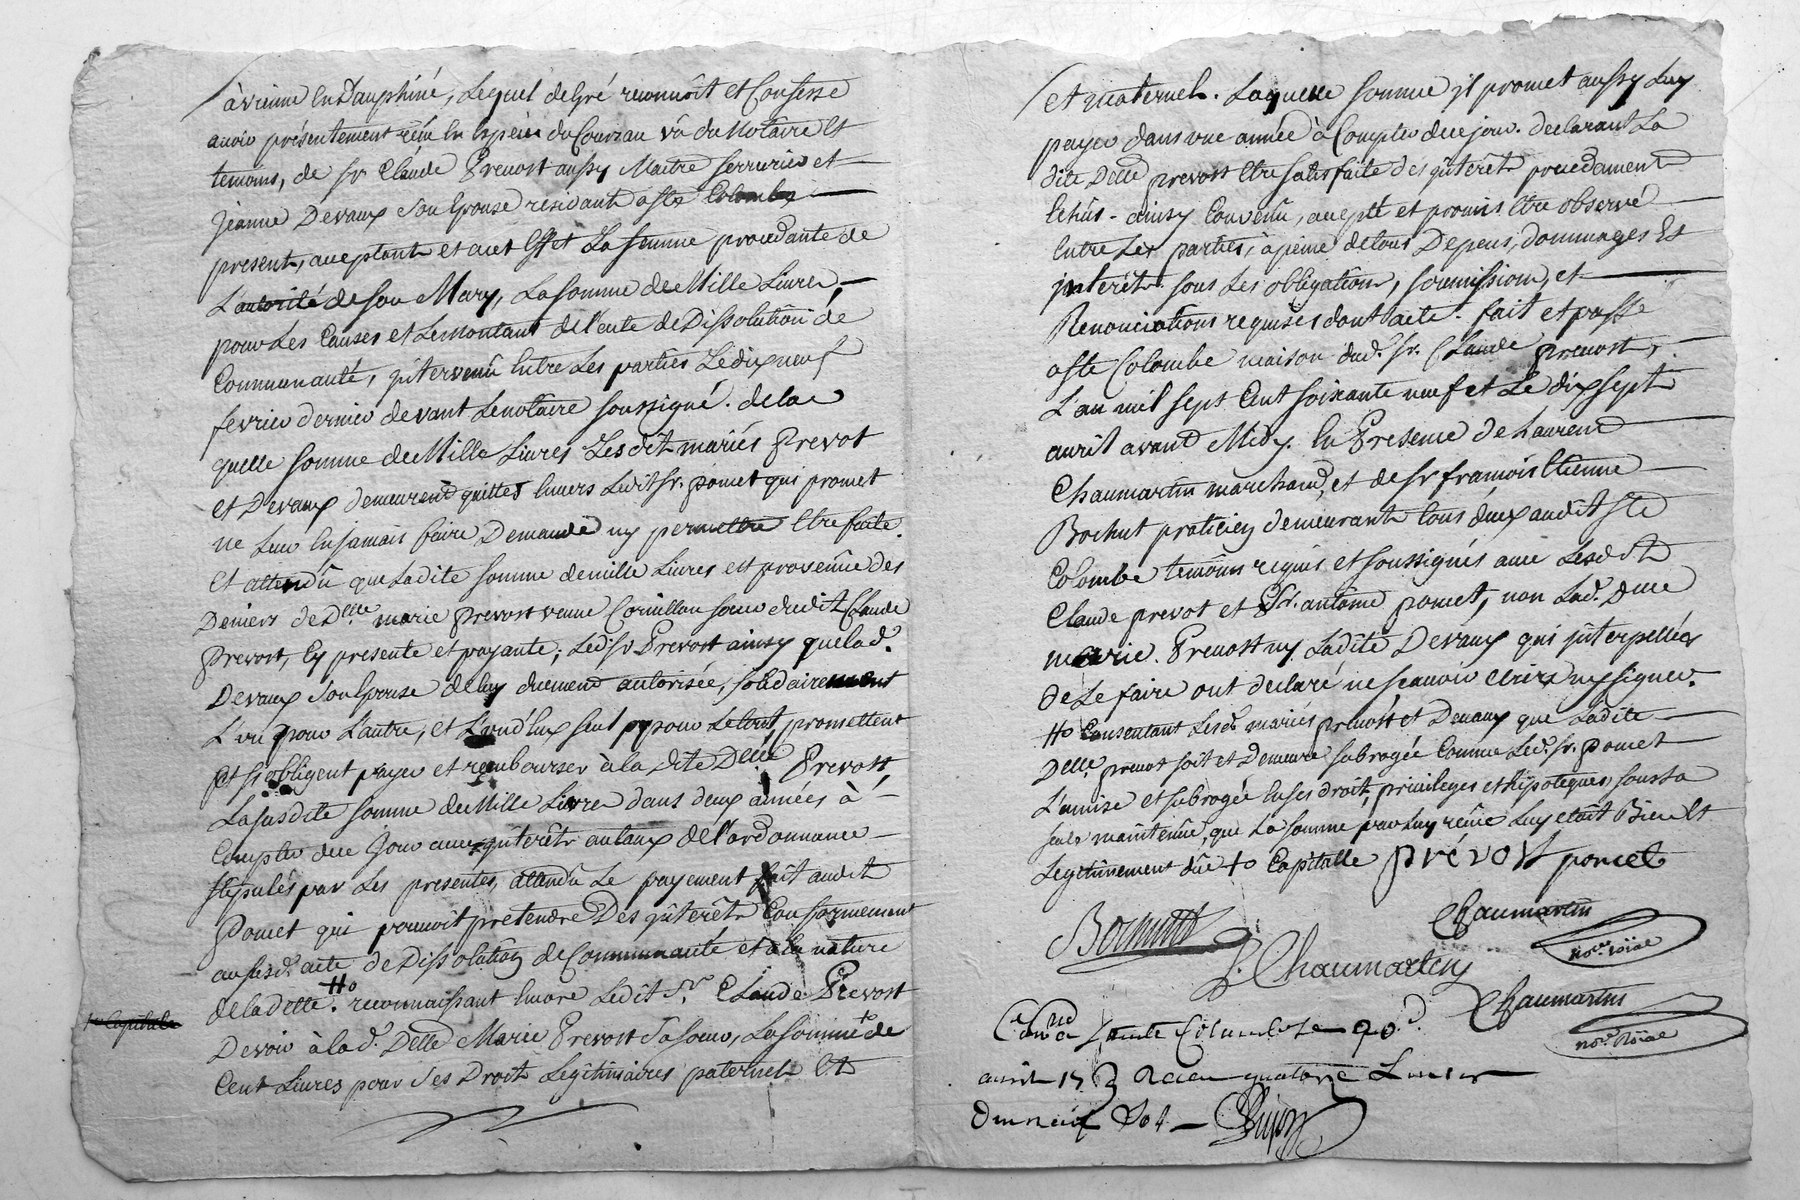 à vienne En Dauphiné, Lequel de Gré reconnoit et Confesse
avoir présentement reçu En Espèces du Cour au vû du Notaire Et
temoins, de Sr Claude Prevost aussy Maitre Serrurier et
Jeanne Devaux Son Epouse residants a Ste Colombe
presents, acceptants et acet Effet La femme procedante de
L'autorité de Son Mary, La Somme de Mille Livres,
pour Les Causes et Le montant de l'acte de Dissolution de
Communauté, intervenû Entre Les parties Le dix neuf
fevrier dernier devant Le notaire soussigné. de la
quelle Somme de Mille Livres Lesdit mariés Prevot
et Devaux demeurent quittes Envers Ledit Sr. pomet qui promet
ne Leur En jamais faire Demande ny permettre Etre faite.
Et attendû que Ladite Somme de mille Livres est provenûe des
Deniers de Delle marie prevost veuve Cornillon soeur dudit Claude
Prevost, Cy presente et payante; Ledit Sr Prevost ainsy que lad.
Devaux Son Epouse de luy düement autorisée, Solidairement
L'un pour L'autre, et L'un d'Eux seul pour Le tout, promettent
Et s'obligent payer et rembourser à la Dite Delle Prevost,
La susdite Somme de Mille Livres dans deux années à
Compter de ce Jour avec intérêts au taux de l'ordonnance
Stipulés par Les presentes, attendû Le payement fait audit
Pomet qui pouvoit pretendre Des intérêts Conformement
au susd. acte de Dissolution de Communauté et a la nature
de la dette. Ho reconnaissant Encore Ledit Sr. Claude Prevost
1re Capitale
Devoir à la d. Delle Marie Prevost Sa soeur, La Somme de
Cent Livres pour Ses Droits Légitimaires paternels Et
et maternels. Laquelle Somme il promet aussy Luy
payer dans une année à Compter de ce jour. declarant La
dite Delle prevost Etre satisfaite des intérêts precedament
Echûs. ainsy Convenû, accepté et promis Etre observé
Entre Les parties, à peine de tous Depens, dommages Et
intérêts sous Les obligations, soumissions, et
Renonciations requises dont acte. fait et passé
a Ste Colombe maison dud. Sr. Claude prevost,
L'an mil sept Cent soixante neuf et Le dix sept
avril avant Midy. En Presence de Laurent
Chaumartin marchand, et de Sr françois Etienne
Bochut praticien demeurants tous deux audit Ste
Colombe temoins requis et soussignés avec Lesdits
Claude prevot et Sr. antoine pomet, non Lad. Dlle
marie. Prevost ny Ladite Devaux qui interpellées
de Le faire ont declaré ne scavoir ecrire ny signer.
Ho Consentant Lesd. mariés prevost et Devaux que Ladite
Delle. prevot soit et Demeure subrogée Comme Led. Sr. Pomet
L'a mise et subrogée En ses droits, privileges et hipoteques sous sa
seule maintenüe, que La Somme par Luy reçûe Luy etoit Bien Et
Legitimement dûe Ho Capitalle prévost pomet
Bochutt
Chaumartin
nore. roïal
L. Chaumarten
Chaumartin
nore. Roïal
Con.lé a Sainte Colombe Le 20d.
avril 17 Receu quatorze Livres